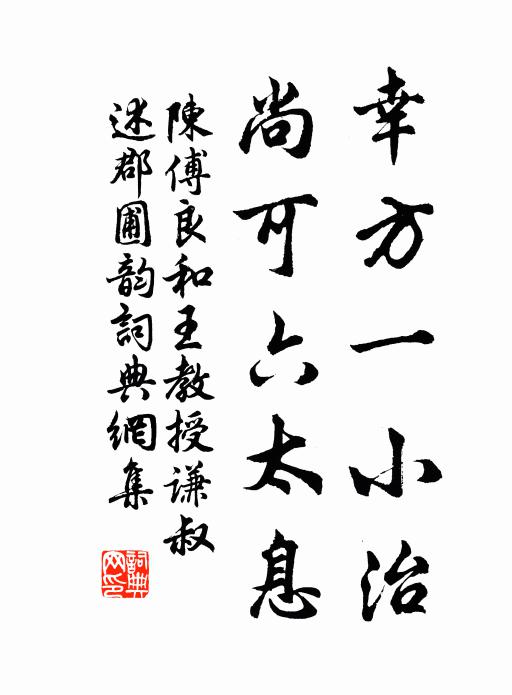 幸方一小治
尚可六太息
陳傅良和王教授謙叔
述郡圃韵詞典網集
詞典
网印